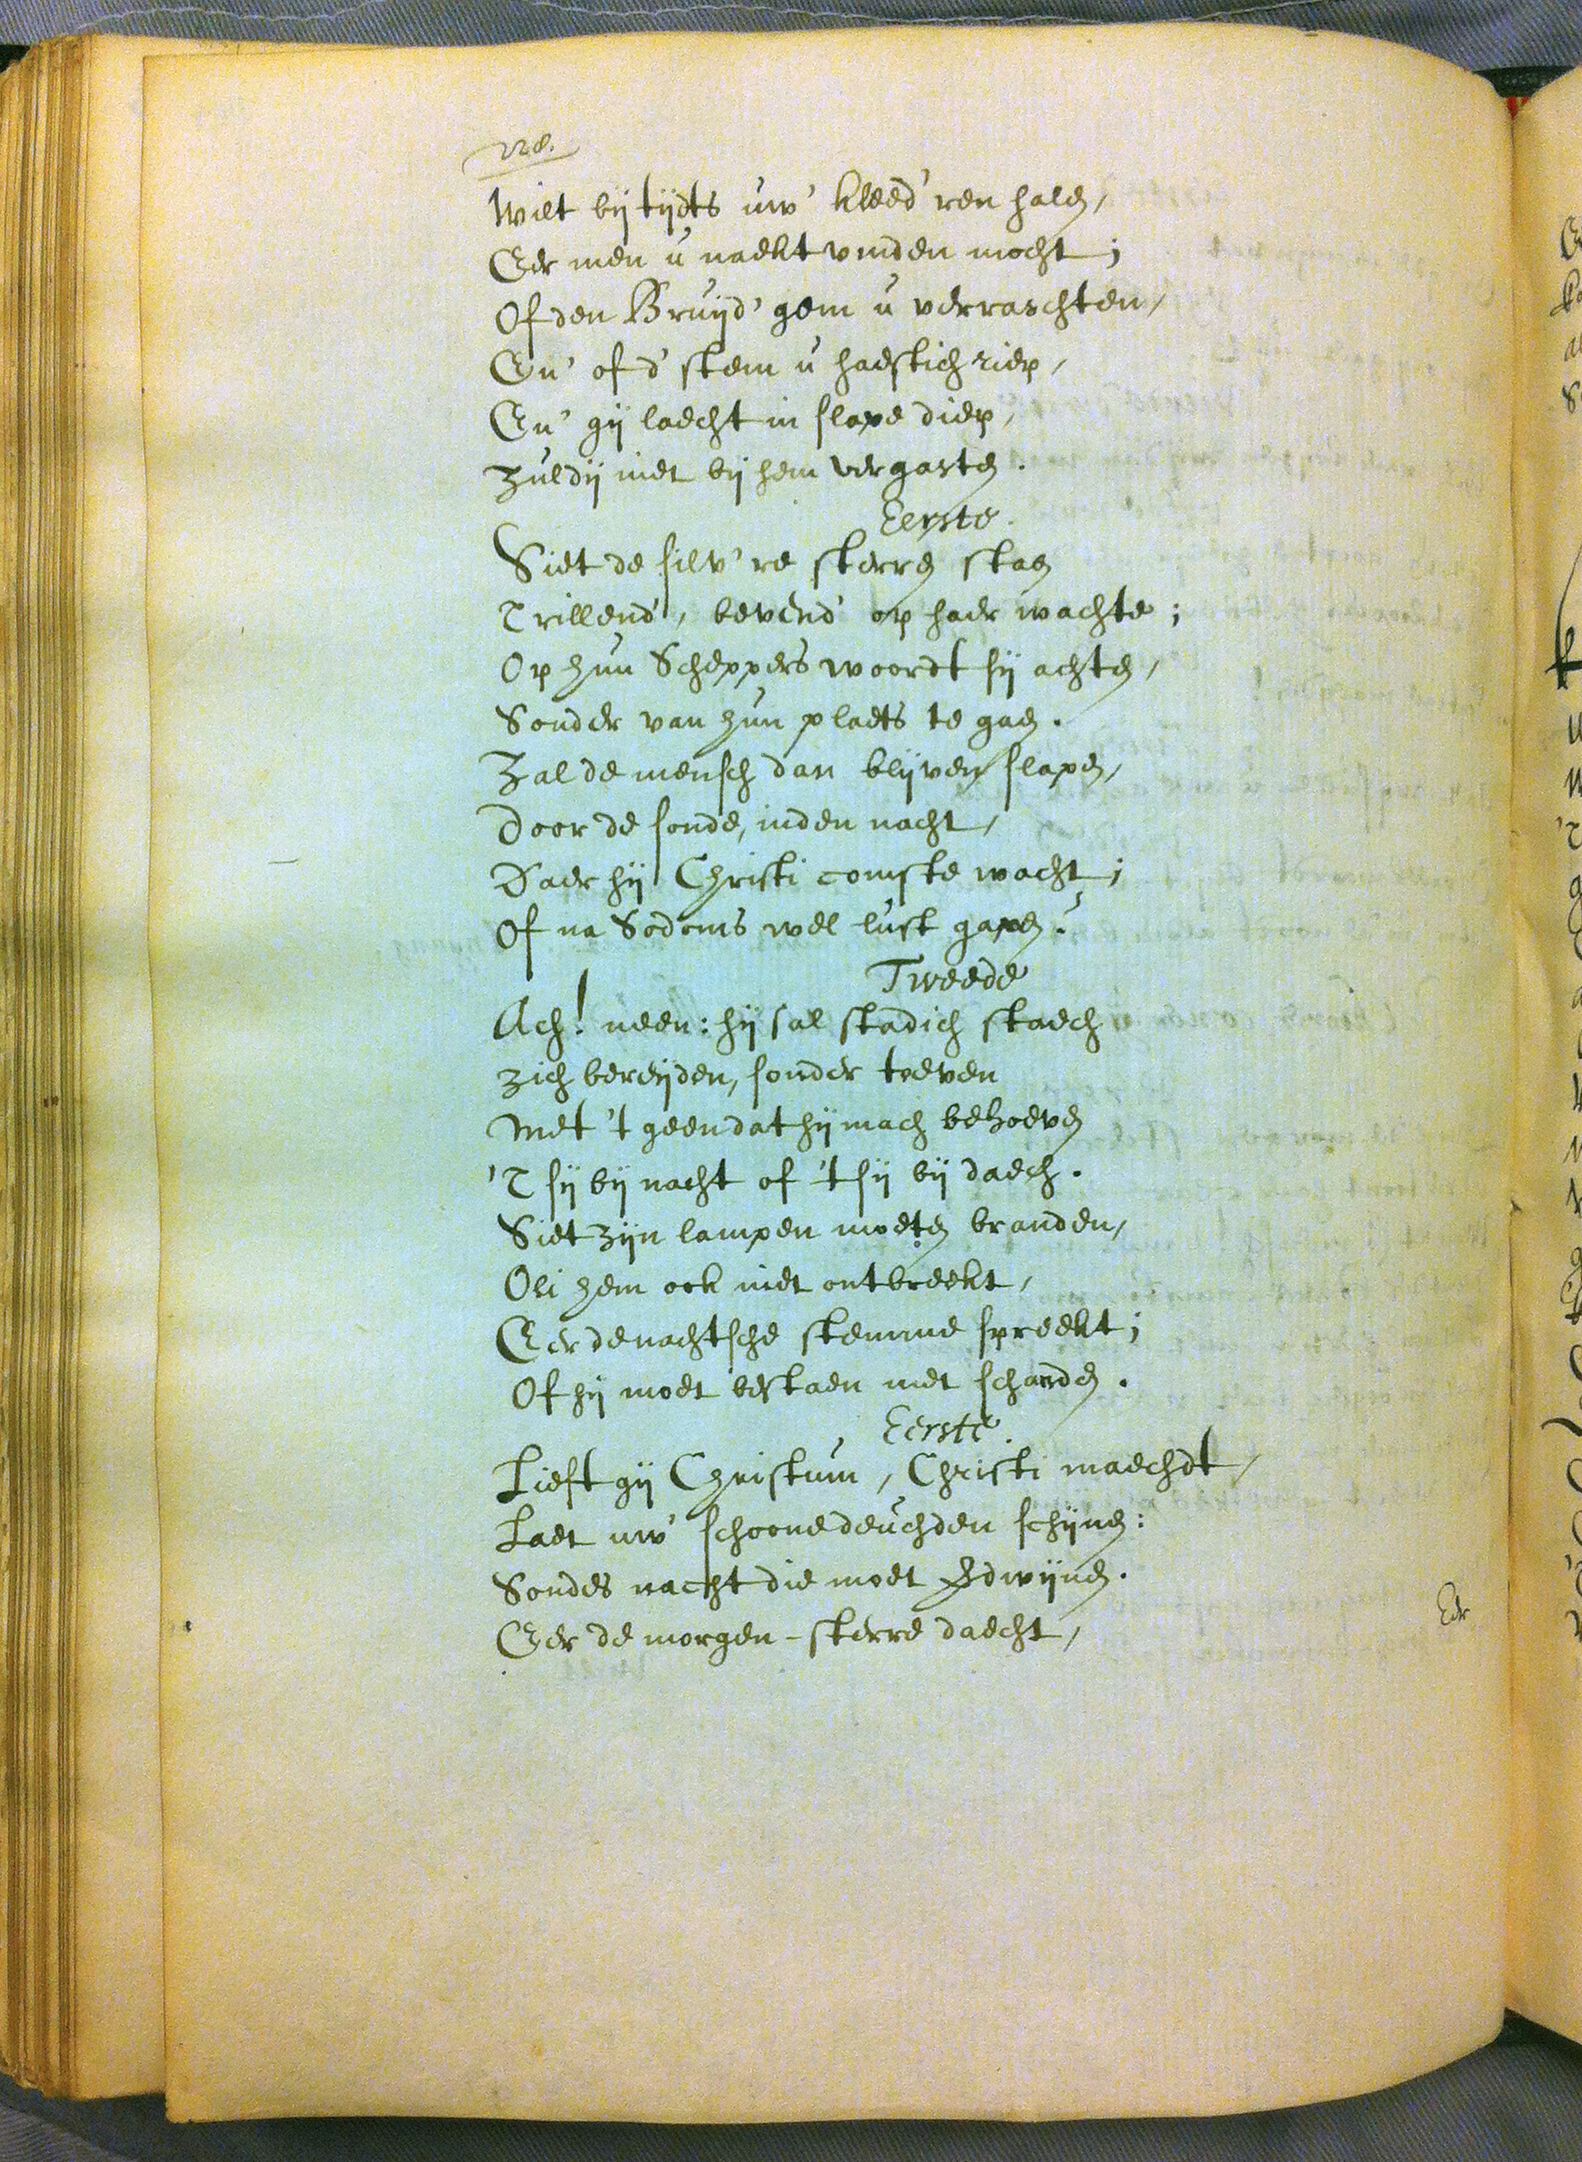 228.
Wilt bij tijdts uw' kleed'ren halen,
Eer men u naekt vinden mocht;
Of den Bruijd'gem u verraschten,
En' of d' stem u haestich riep,
En' gij laecht in slape diep,
Zuldij niet bij hem vergasten.
Eerste.
Siet de silv're sterren staen
Trillend', bevend' op haer wachte;
Op hun Scheppers woordt sij achten,
Sonder van hun plaets te gaen.
Zal de mensch dan blijven slapen,
Door de sonde, inden nacht,
Daer hij Christi comste wacht;
Of na Sodoms wel lust gapen?
Tweede
Ach! neen: hij sal stadich staech
Zich bereijden, sonder toeven
Met 't geen dat hij mach behoeven
'T sij bij nacht of 't sij bij daech.
Siet zijn lampen moeten branden,
Oli hem ook niet ontbreekt,
Eer de nachtsche stemme spreekt;
Of hij moet bestaen met schanden.
Eerste.
Lieft gij Christum, Christi maechdt,
Laet uw' schoone deuchden schijnen:
Sondes nacht die moet verdwijnen.
Eer de morgen-sterre daecht,
Eer